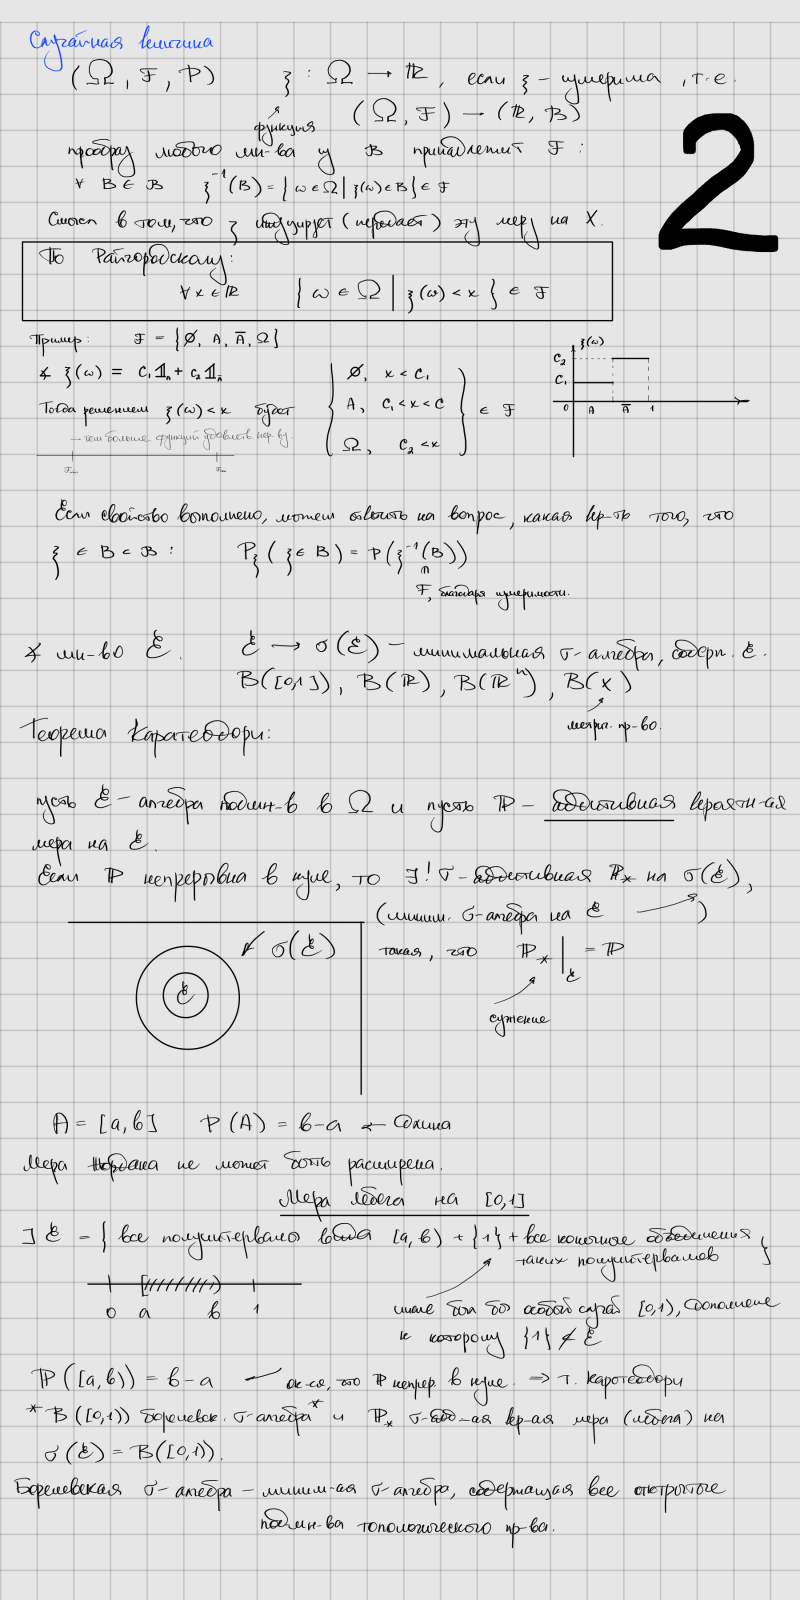 Случайная величина
(Ω, F, P) ξ : Ω → ℝ, если ξ - измерима, т.е.
функция (Ω, F) → (ℝ, B)
2
прообраз любого мн-ва из B принадлежит F :
∀ B ∈ B ξ⁻¹(B) = { ω ∈ Ω | ξ(ω) ∈ B } ∈ F
Смысл в том, что ξ индуцирует (передаёт) эту меру на X.
По Райгородскому:
∀ x ∈ ℝ { ω ∈ Ω | ξ(ω) < x } ∈ F
Пример: F = {∅, A, A̅, Ω}
∡ ξ(ω) = C₁𝟙 + C₂𝟙
Тогда решением ξ(ω) < x будет
{ ∅, x < C₁
A, C₁ < x < C
Ω, C₂ < x } ∈ F
ξ(ω)
C₂
C₁
0 A A̅ 1
— чем больше функций удовлетв. нер-ву.
Если свойство выполнено, можем ответить на вопрос, какая вер-ть того, что
ξ ∈ B ∈ B : P_ξ (ξ ∈ B) = P(ξ⁻¹(B))
∩
F, благодаря измеримости.
∡ мн-во ℰ. ℰ → σ(ℰ) — минимальная σ-алгебра, содерж. ℰ.
B([0,1]), B(ℝ), B(ℝⁿ), B(X)
метрич. пр-во.
Теорема Каратеодори:
пусть ℰ - алгебра подмн-в в Ω и пусть ℙ - аддитивная вероятн-ая
мера на ℰ.
Если ℙ непрерывна в нуле, то ∃! σ-аддитивная ℙ* на σ(ℰ),
(миним. σ-алгебра на ℰ)
σ(ℰ)
ℰ
такая, что ℙ*|ℰ = ℙ
сужение
A = [a, b] P(A) = b-a ← длина
Мера Жордана не может быть расширена.
Мера Лебега на [0,1]
] ℰ = { все полуинтервалы вида [a, b) + {1} + все конечные объединения
таких полуинтервалов }
0 a b 1
иначе был бы особый случай [0,1), дополнение
к которому {1} ∉ ℰ
ℙ([a, b)) = b-a — ок-ся, что ℙ непрер. в нуле. ⇒ т. Каратеодори
*B([0,1)) борелевск. σ-алгебра* и ℙ* σ-адд-ая вер-ая мера (Лебега) на
σ(ℰ) = B([0,1)).
Борелевская σ-алгебра — миним-ая σ-алгебра, содержащая все открытые
подмн-ва топологического пр-ва.